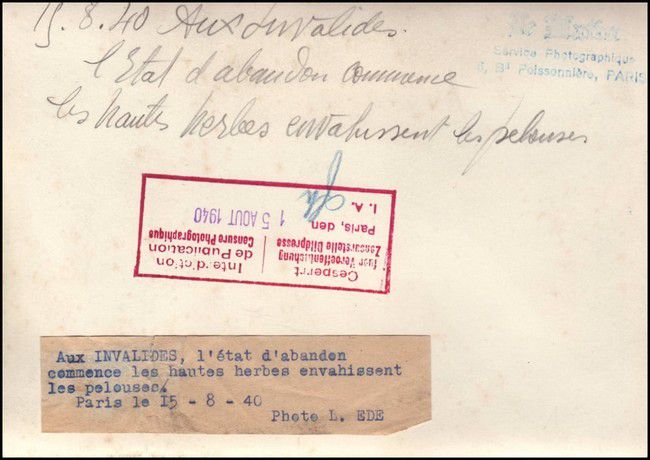 15.8.40 Aux Invalides.
l'Etat d'abandon commence
les hautes herbes envahissent les pelouses
Le Matin
Service Photographique
6, Bd Poissonnière, PARIS
Gesperrt
fuer Veroeffentlichung
Zensurstelle Bildpresse
Interdiction
de Publication
Censure Photographique
Paris, den 15 AOUT 1940
I. A.
Aux INVALIDES, l'état d'abandon
commence les hautes herbes envahissent
les pelouses.
Paris le I5 - 8 - 40
Photo L. EDE